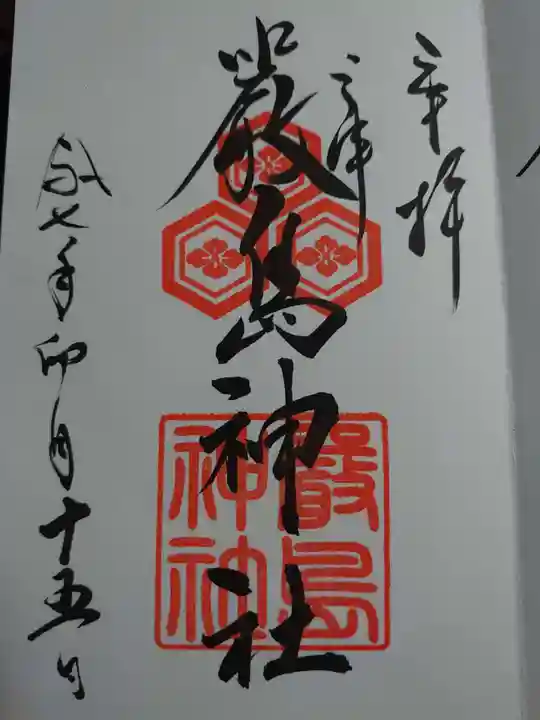 奉拝
三津
嚴島神社
嚴島
神社
令和七年卯月十五日